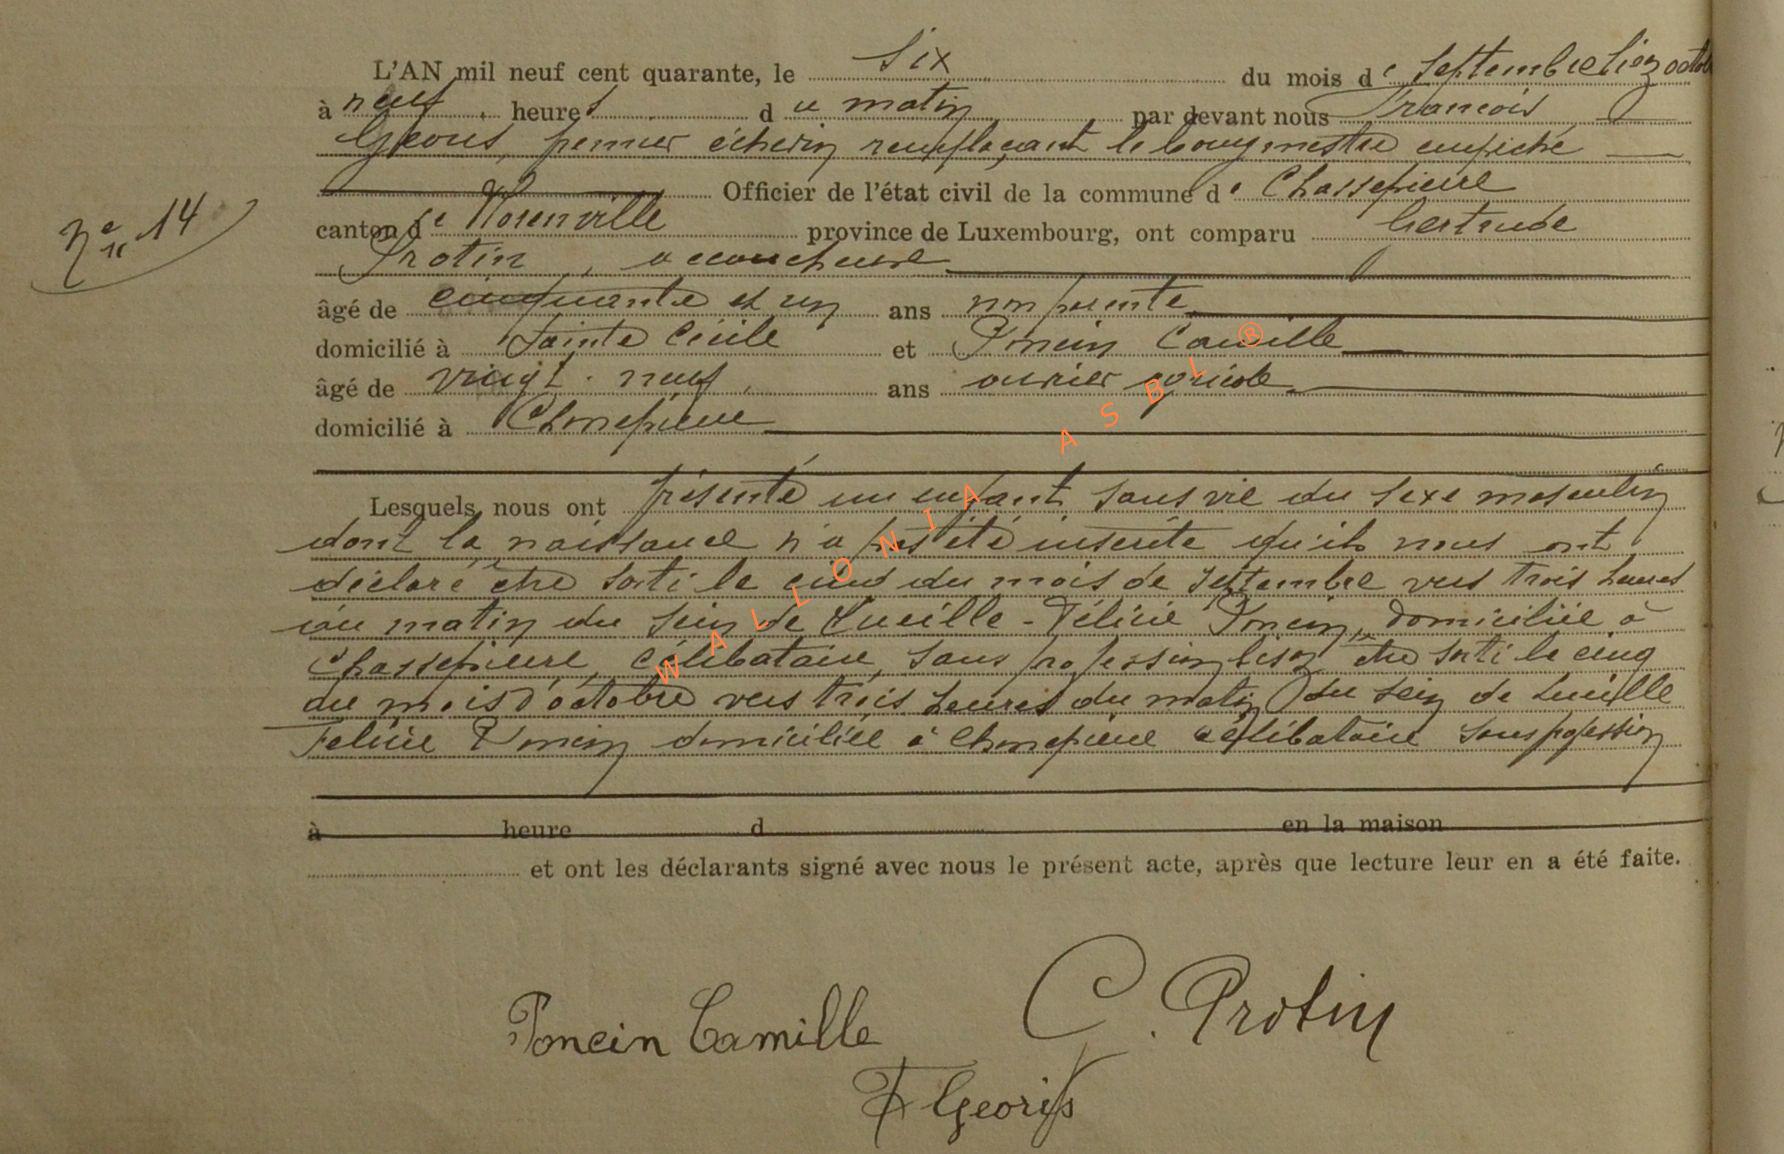 L'AN mil neuf cent quarante, le six du mois de Septembre lisez octobre
à neuf heures du matin par devant nous François
Georis, premier échevin remplaçant le bourgmestre empêché
Officier de l'état civil de la commune de Chassepierre
N° 14
canton de Florenville province de Luxembourg, ont comparu Gertrude
Protin, accoucheuse
âgé de cinquante et un ans non parente
domicilié à Sainte Cécile et Poncin Camille
âgé de vingt-neuf ans ouvrier agricole
domicilié à Chassepierre
Lesquels nous ont présenté un enfant sans vie du sexe masculin
dont la naissance n'a pas été inscrite qu'ils nous ont
déclaré être sorti le cinq du mois de Septembre vers trois heures
du matin du sein de Lucille-Félicie Poncin, domiciliée à
Chassepierre, célibataire, sans profession lisez être sorti le cinq
du mois d'octobre vers trois heures du matin du sein de Lucille
Félicie Poncin domiciliée à Chassepierre célibataire sans profession
à heure d en la maison
et ont les déclarants signé avec nous le présent acte, après que lecture leur en a été faite.
Poncin Camille G. Protin
F Georis
WALLONIA ASBL ®